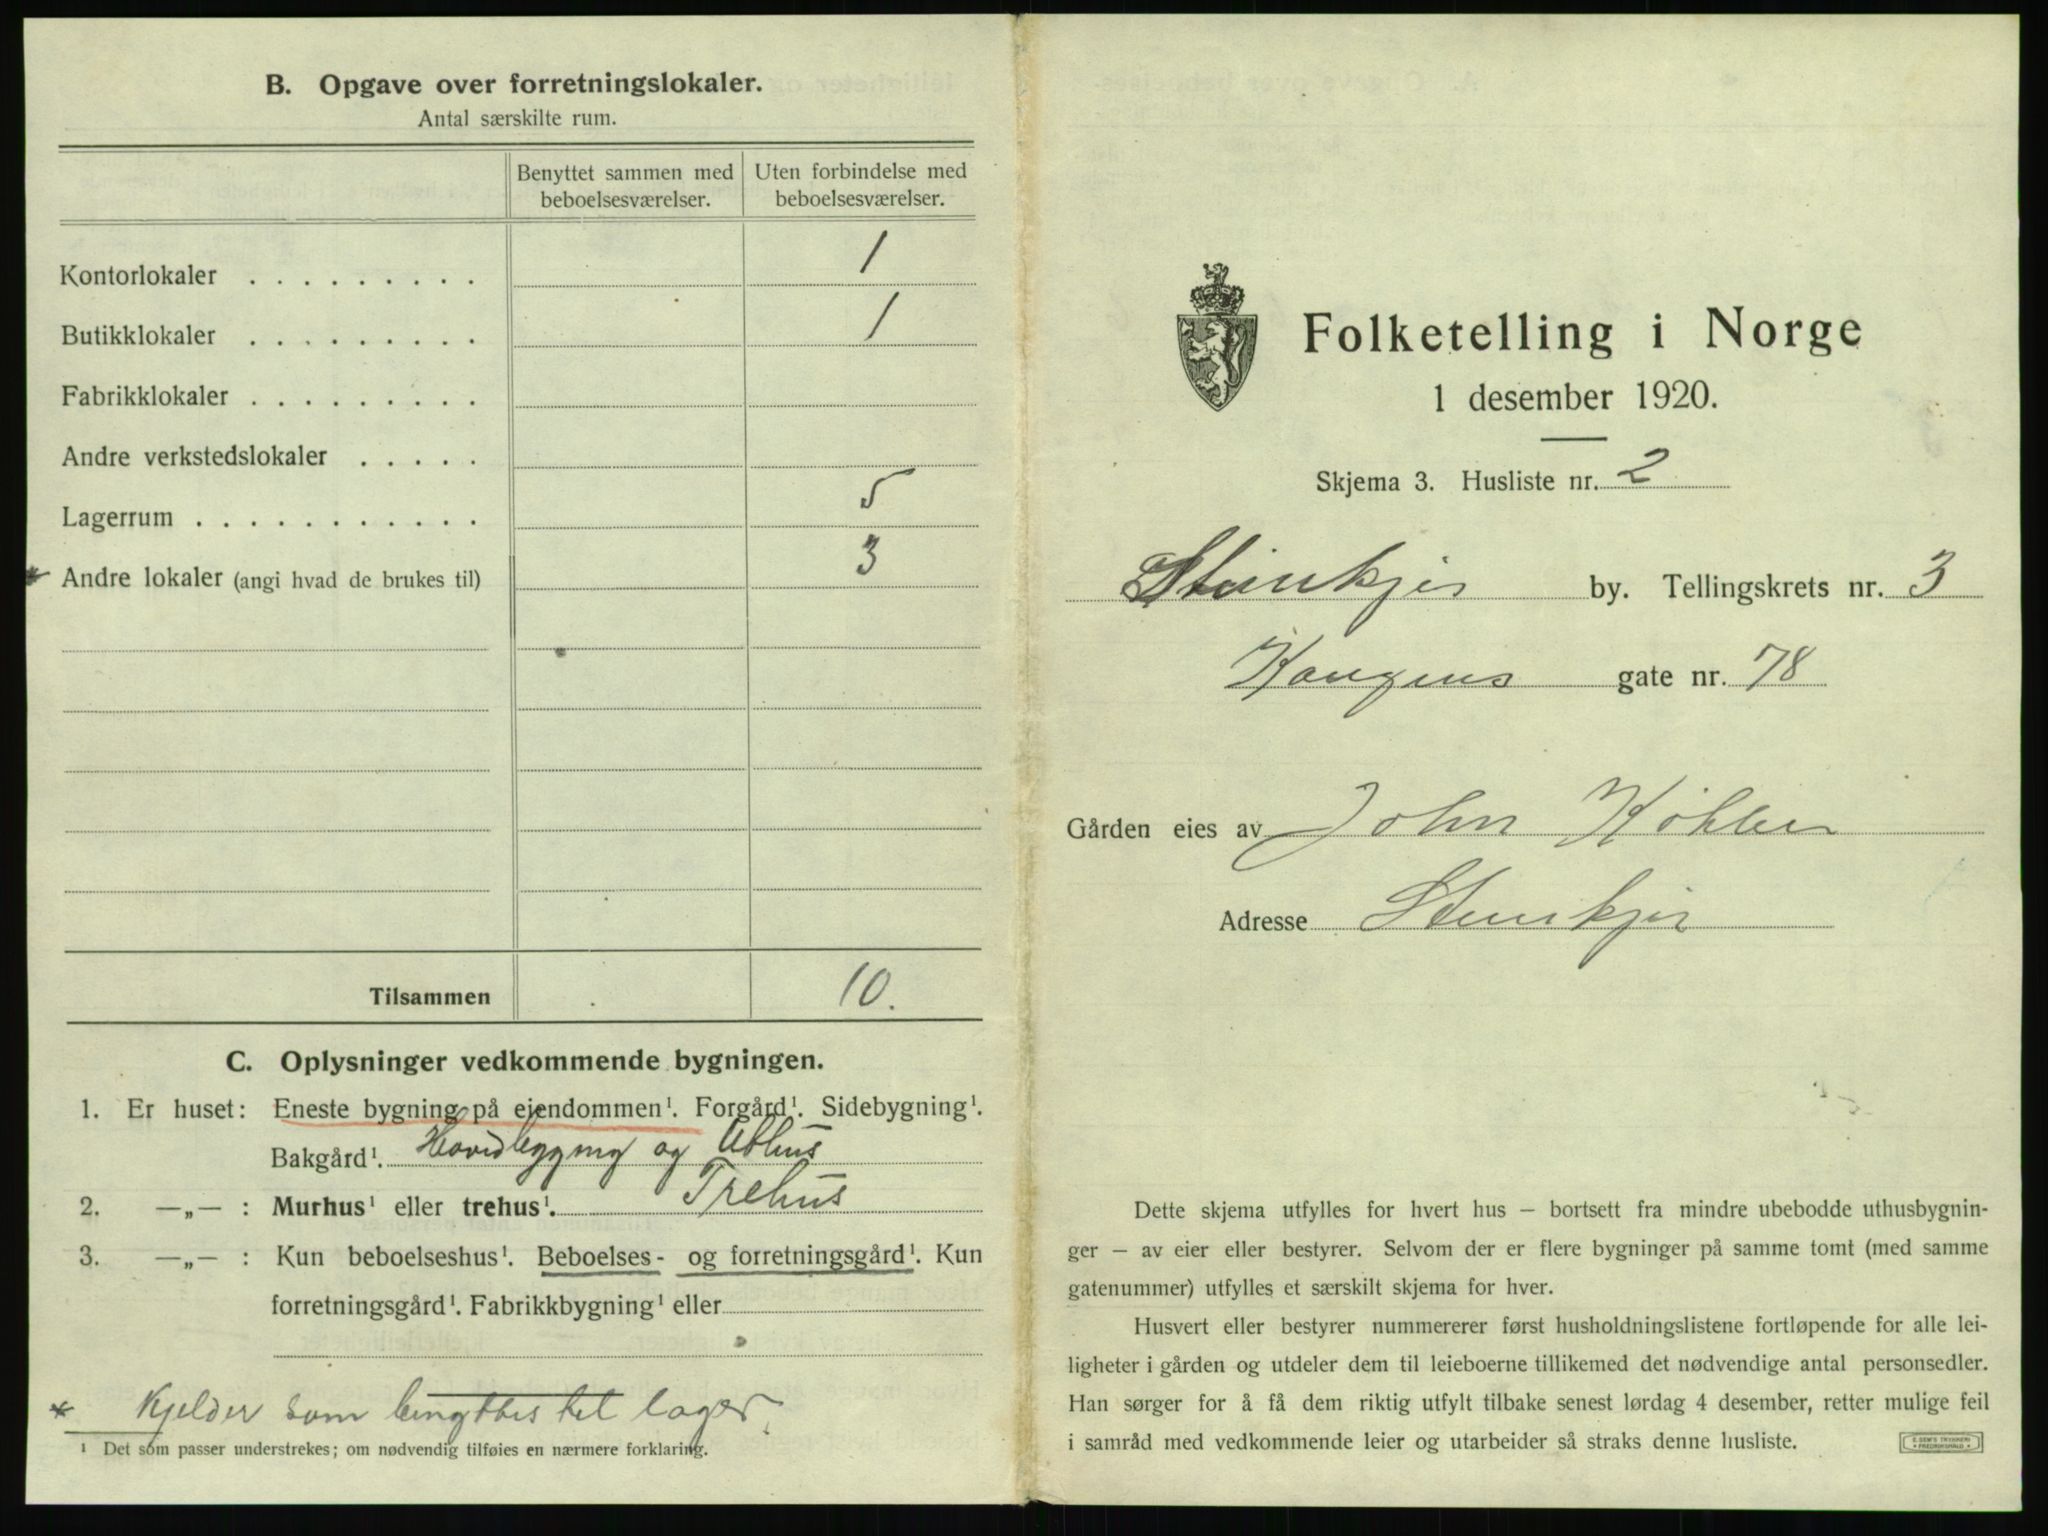 B. Opgave over forretningslokaler.
Antal særskilte rum.
Benyttet sammen med beboelsesværelser.
Uten forbindelse med beboelsesværelser.
Kontorlokaler . . . . . . . . . 1
Butikklokaler . . . . . . . . . 1
Fabrikklokaler . . . . . . . . .
Andre verkstedslokaler . . . . .
Lagerrum . . . . . . . . . . . 5
* Andre lokaler (angi hvad de brukes til) 3
Tilsammen 10.
C. Oplysninger vedkommende bygningen.
1. Er huset: Eneste bygning på eiendommen¹. Forgård¹. Sidebygning¹.
Bakgård¹. Hovedbygging og Uthus
2. —„— : Murhus¹ eller trehus¹. Trehus
3. —„— : Kun beboelseshus¹. Beboelses- og forretningsgård¹. Kun
forretningsgård¹. Fabrikkbygning¹ eller
* Kjelder som til lager.
¹ Det som passer understrekes; om nødvendig tilføies en nærmere forklaring.
Folketelling i Norge
1 desember 1920.
Skjema 3. Husliste nr. 2
Steinkjer by. Tellingskrets nr. 3
Kongens gate nr. 78
Gården eies av John Køhler
Adresse Steinkjer
Dette skjema utfylles for hvert hus – bortsett fra mindre ubebodde uthusbygnin-
ger – av eier eller bestyrer. Selvom der er flere bygninger på samme tomt (med samme
gatenummer) utfylles et særskilt skjema for hver.
Husvert eller bestyrer nummererer først husholdningslistene fortløpende for alle lei-
ligheter i gården og utdeler dem til leieboerne tillikemed det nødvendige antal personsedler.
Han sørger for å få dem riktig utfylt tilbake senest lørdag 4 desember, retter mulige feil
i samråd med vedkommende leier og utarbeider så straks denne husliste.
E. SEM'S TRYKKERI
FREDRIKSHALD